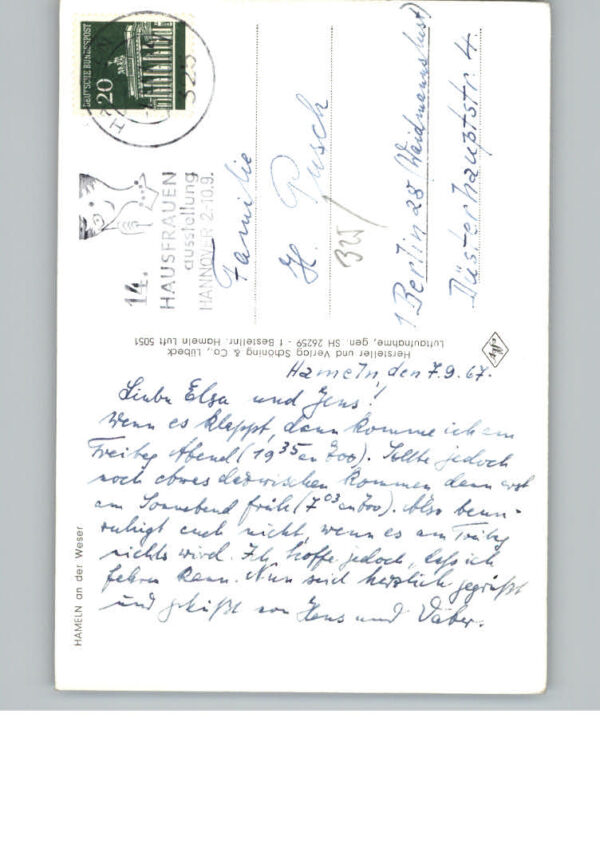 Hameln, den 7.9.67.
Liebe Elsa und Jens!
Wenn es klappt, dann komme ich am
Freitag Abend (19 35 an Zoo). Sollte jedoch
noch etwas dazwischen kommen dann erst
am Sonnabend früh (7 03 an Zoo). Also beun-
ruhigt euch nicht, wenn es am Freitag
nichts wird. Ich hoffe jedoch, daß ich
fahren kann. Nun seid herzlich gegrüßt
und geküßt von Jens und Vater.
HAMELN an der Weser
Hersteller und Verlag Schöning & Co., Lübeck
Luftaufnahme, gen. SH 26259 - 1 Bestellnr. Hameln Luft 5051
DEUTSCHE BUNDESPOST
20
14.
HAUSFRAUEN
ausstellung
HANNOVER 2.-10.9.
Familie
H. Pusch
1 Berlin 28 (Waidmannslust)
Düsterhauptstr 4